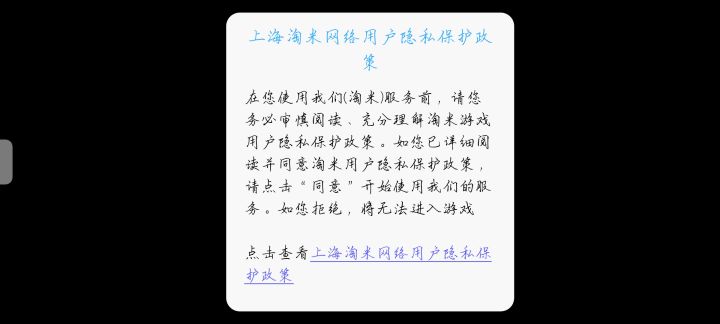 上海淘米网络用户隐私保护政
策
在您使用我们(淘米)服务前，请您
务必审慎阅读、充分理解淘米游戏
用户隐私保护政策。如您已详细阅
读并同意淘米用户隐私保护政策，
请点击“同意”开始使用我们的服
务。如您拒绝，将无法进入游戏
点击查看上海淘米网络用户隐私保
护政策